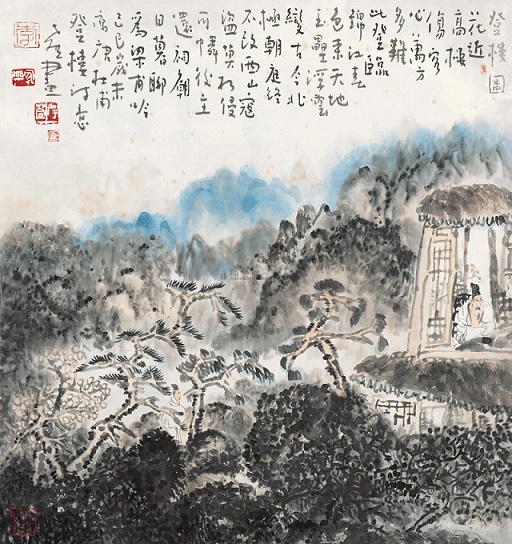 登樓圖
花近
高樓
傷客
心萬方
多難
此登臨
錦江春
色来天地
玉壘浮雲
變古今北
極朝庭終
不改西山寇
盜莫相侵
可憐後主
還祠廟
日暮聊
為梁甫吟
己巳歲末
寫唐杜甫
登樓詩意
畫